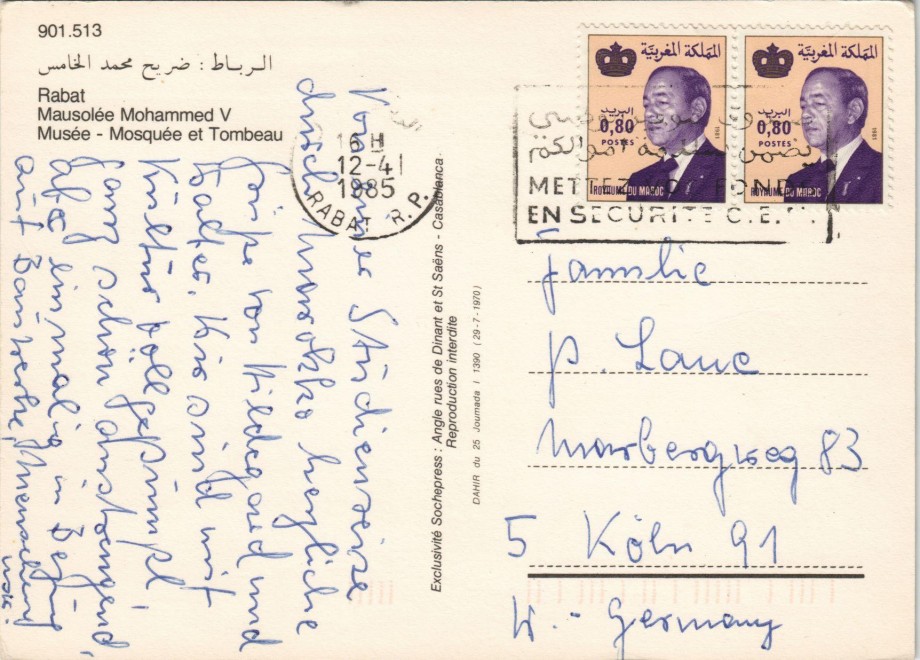 901.513
الربـاط : ضريح محمد الخامس
Rabat
Mausolée Mohammed V
Musée - Mosquée et Tombeau
Von einer Studienreise
durch Marokko herzliche
Grüße von Hildegard und
Walter. Wir sind mit
Kultur vollgepumpt,
ganz schön anstrengend,
aber einmalig in Bezug
auf Bauwerke, Menschen
usw.
16 H
12-4
1985
RABAT R.P.
Exclusivité Sochepress : Angle rues de Dinant et St Saëns - Casablanca
Reproduction interdite
DAHIR du 25 Joumada I 1390 (29-7-1970)
المملكة المغربية
البريد
0,80
POSTES
1981
ROYAUME DU MAROC
المملكة المغربية
البريد
0,80
POSTES
1981
ROYAUME DU MAROC
METTEZ FOND
EN SECURITE C.E.
Familie
P. Laue
Marbergweg 83
5 Köln 91
W.-Germany